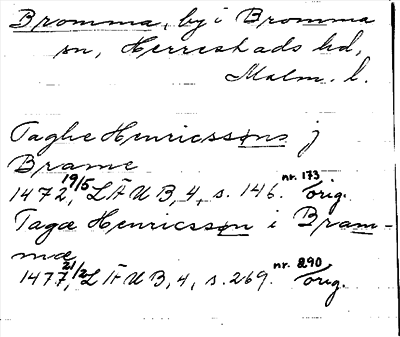 Bromma, by i Bromma
sn, Herrestads hd,
Malm. l.
Taghe Henricssøns j
Brame
1472 19/5, LÄUB, 4, s. 146. nr. 173 / orig.
Tagæ Henricssøn i Bram-
mæ
1477 21/2, LÄUB, 4, s. 269. nr. 290 / orig.